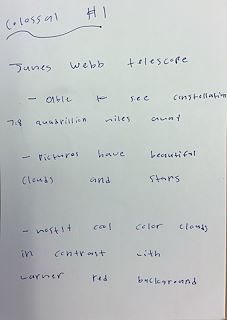 Colossal #1
James Webb telescope
- able to see constellation
7.8 quadrillion miles away
- pictures have beautiful
clouds and stars
- mostly cool color clouds
in contrast with
warmer red background